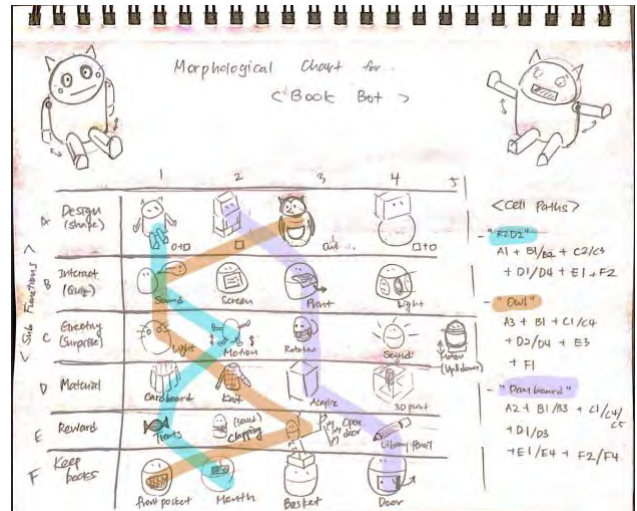 Morphological Chart for...
< Book Bot >
1 2 3 4 5
<Sub Functions>
A Design (shape)
□ Owl □+o
B Internet (Quiz)
Sound Screen Print Light
C Greeting (Surprise)
Light Motion Rotation Sound Motion (Up&down)
D Material
Cardboard Knit Acrylic 3D print
E Reward
Treats (sound) clapping Open door Library Pawl
F Keep books
front pocket Mouth Basket Door
<Cell Paths>
- "R2D2"
A1 + B1/B2 + C2/C3
+ D1/D4 + E1 + F2
- "Owl"
A3 + B1 + C1/C4
+ D2/D4 + E3
+ F1
A2 + B1/B3 + C1/C4/C5
+ D1/D3
+ E1/E4 + F2/F4